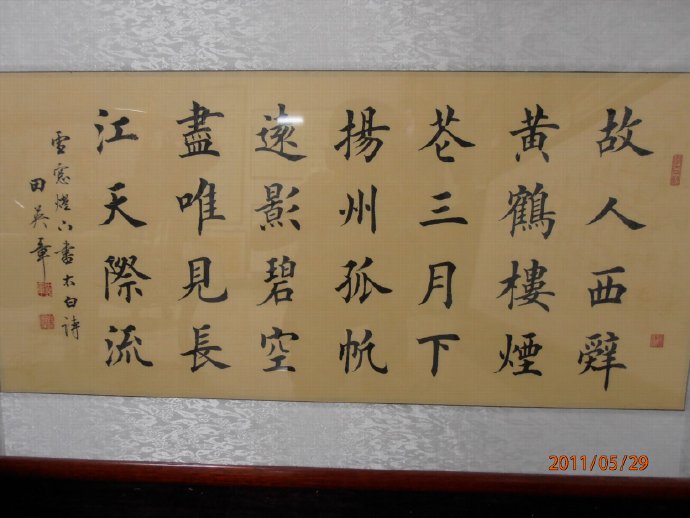 故人西辭
黃鶴樓煙
花三月下
揚州孤帆
遠影碧空
盡唯見長
江天際流
雪窓燈下書太白詩
田英章
2011/05/29